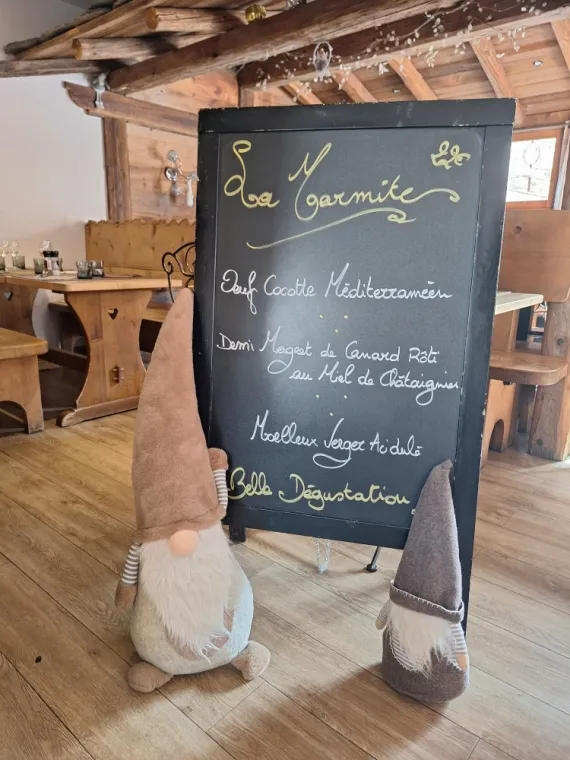 La Marmite
Oeuf Cocotte Méditerraméen
Demi Magret de Canard Rôti
au Miel de Châtaignier
Moelleux Verger Acidulé
Belle Dégustation.